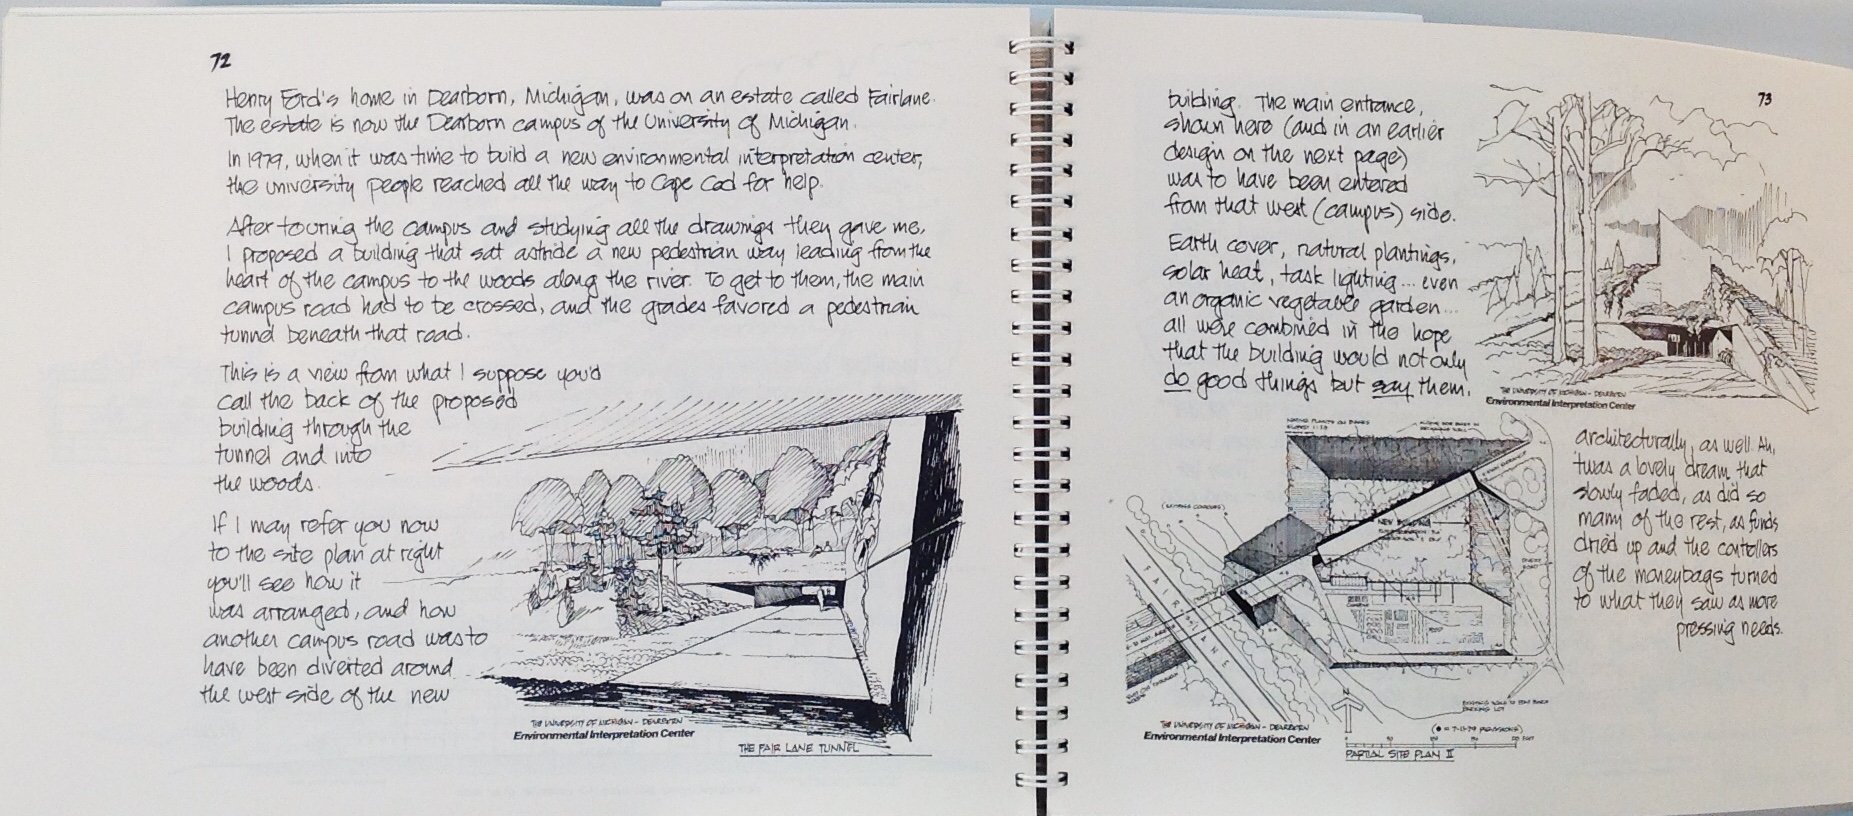 72
Henry Ford's home in Dearborn, Michigan, was on an estate called Fairlane.
The estate is now the Dearborn campus of the University of Michigan.
In 1979, when it was time to build a new environmental interpretation center,
the university people reached all the way to Cape Cod for help.
After touring the campus and studying all the drawings they gave me,
I proposed a building that sat astride a new pedestrian way leading from the
heart of the campus to the woods along the river. To get to them, the main
campus road had to be crossed, and the grades favored a pedestrian
tunnel beneath that road.
This is a view from what I suppose you'd
call the back of the proposed
building through the
tunnel and into
the woods.
If I may refer you now
to the site plan at right
you'll see how it
was arranged, and how
another campus road was to
have been diverted around
the west side of the new
THE UNIVERSITY OF MICHIGAN - DEARBORN
Environmental Interpretation Center
THE FAIR LANE TUNNEL
73
building. The main entrance,
shown here (and in an earlier
design on the next page)
was to have been entered
from that west (campus) side.
Earth cover, natural plantings,
solar heat, task lighting... even
an organic vegetable garden...
all were combined in the hope
that the building would not only
do good things but say them,
THE UNIVERSITY OF MICHIGAN - DEARBORN
Environmental Interpretation Center
architecturally, as well. Ah,
'twas a lovely dream that
slowly faded, as did so
many of the rest, as funds
dried up and the controllers
of the moneybags turned
to what they saw as more
pressing needs.
(EXISTING CONTOURS)
NEW BUILDING
FAIR LANE
N
THE UNIVERSITY OF MICHIGAN - DEARBORN
Environmental Interpretation Center
(● = 7-11-79 REVISIONS)
PARTIAL SITE PLAN II